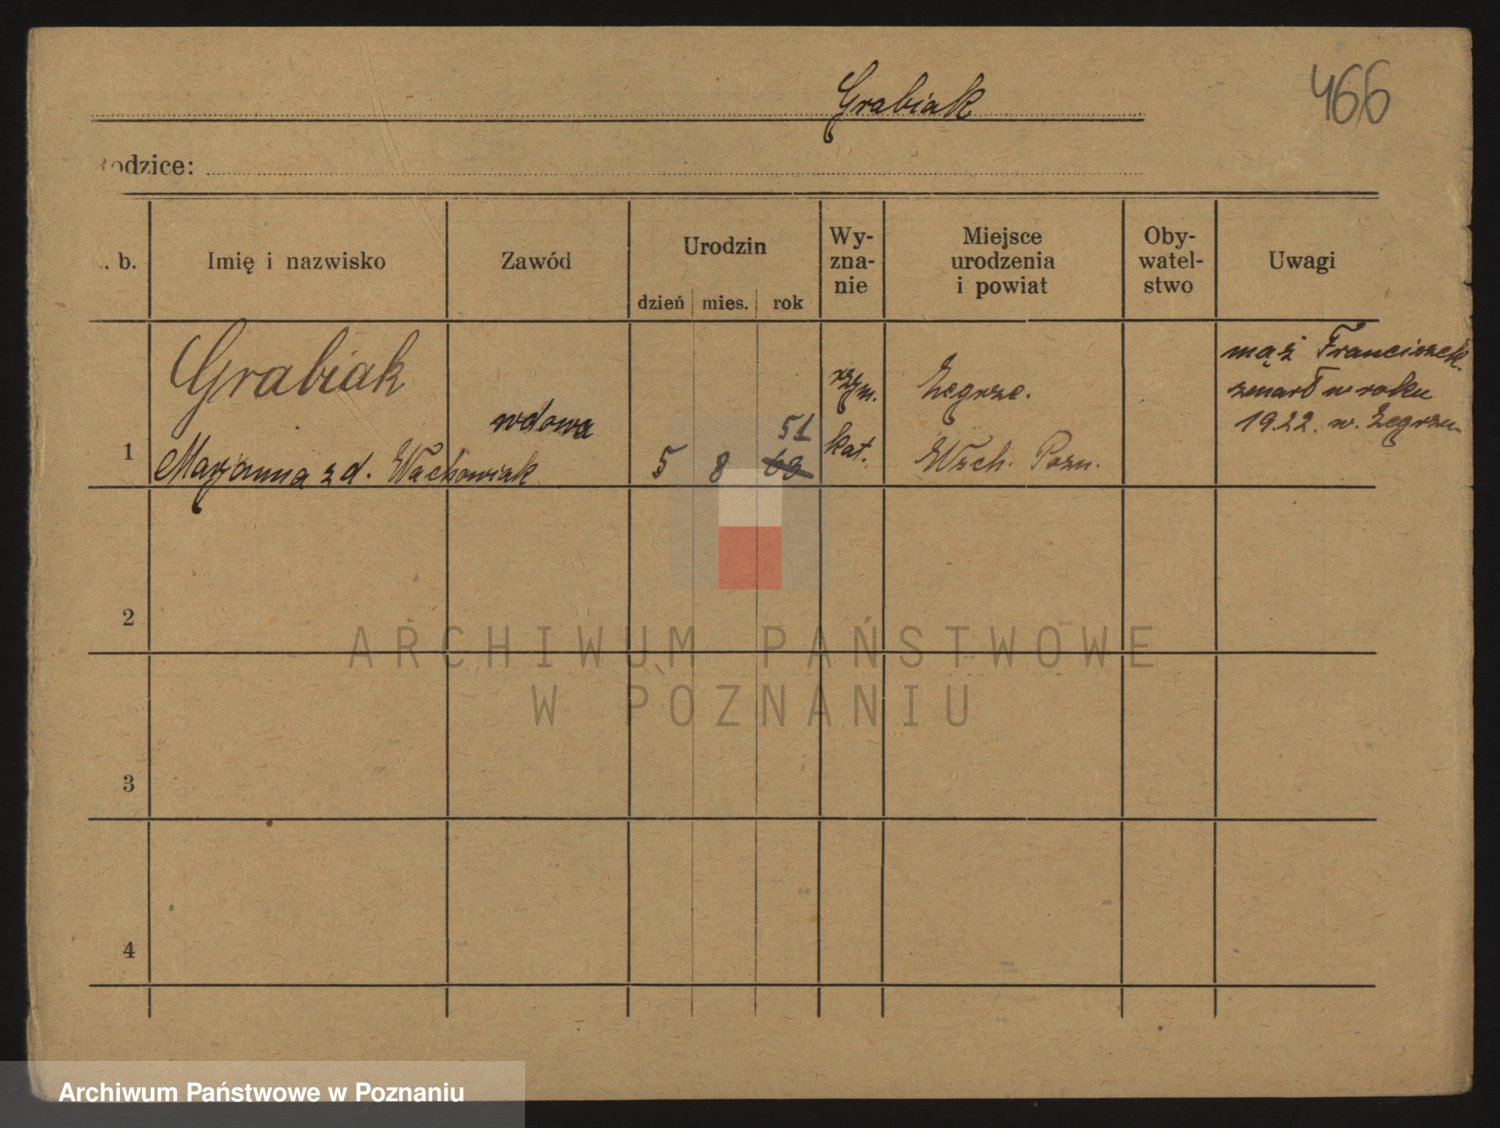 Grabiak
466
odzice:
. b.
Imię i nazwisko
Zawód
Urodzin
dzień mies. rok
Wy-
zna-
nie
Miejsce
urodzenia
i powiat
Oby-
watel-
stwo
Uwagi
1
Grabiak
Maryanna z d. Wachowiak
wdowa
5 8 51
rzym.
kat.
Żegrze.
Wsch. Pozn.
mąż Franciszek.
zmarł w roku
1922. w. Żegrzu
2
3
4
ARCHIWUM PAŃSTWOWE
W POZNANIU
Archiwum Państwowe w Poznaniu